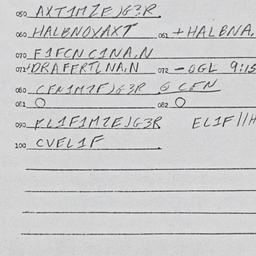 050 AXT1MZE)G3R
060 HALBNOYAXT 061 +HALBNA,
070 F1FCNC1NA,N
071 DRAFFRTLNA,N 072 -OGL 9:15
080 CFN1MZF)G3R G CFN
081 O 082 O
090 FL1F1MZE)G3R EL1F//H
100 CVEL1F